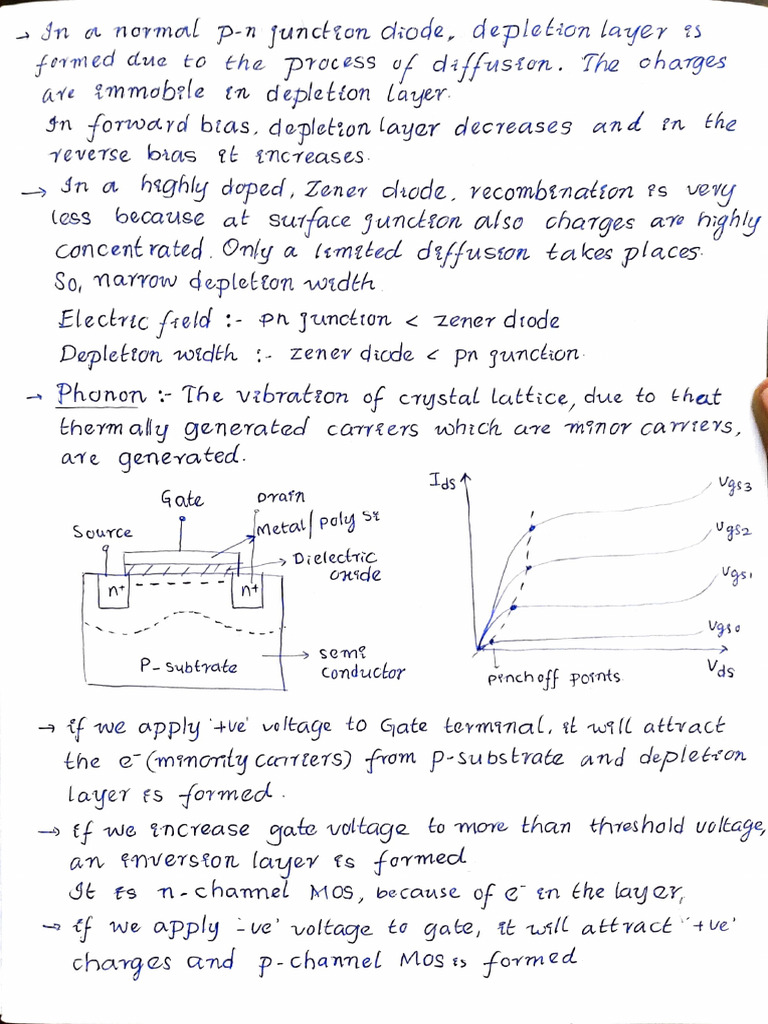 → In a normal p-n junction diode, depletion layer is
formed due to the process of diffusion. The charges
are immobile in depletion layer.
In forward bias, depletion layer decreases and in the
reverse bias it increases.
→ In a highly doped, Zener diode, recombination is very
less because at surface junction also charges are highly
concentrated. Only a limited diffusion takes places.
So, narrow depletion width
Electric field :- pn junction < zener diode
Depletion width :- zener diode < pn junction.
→ Phonon :- The vibration of crystal lattice, due to that
thermally generated carriers which are minor carriers,
are generated.
Gate
Drain
Source
Metal/poly si
Dielectric
oxide
n+
n+
P-subtrate
semi
conductor
Ids
Vgs3
Vgs2
Vgs1
Vgs0
Vds
pinchoff points
→ if we apply '+ve' voltage to Gate terminal, it will attract
the e⁻(minority carriers) from p-substrate and depletion
layer is formed.
→ if we increase gate voltage to more than threshold voltage,
an inversion layer is formed
It is n-channel MOS, because of e⁻ in the layer,
→ if we apply -ve' voltage to gate, it will attract '+ve'
charges and p-channel MOS is formed